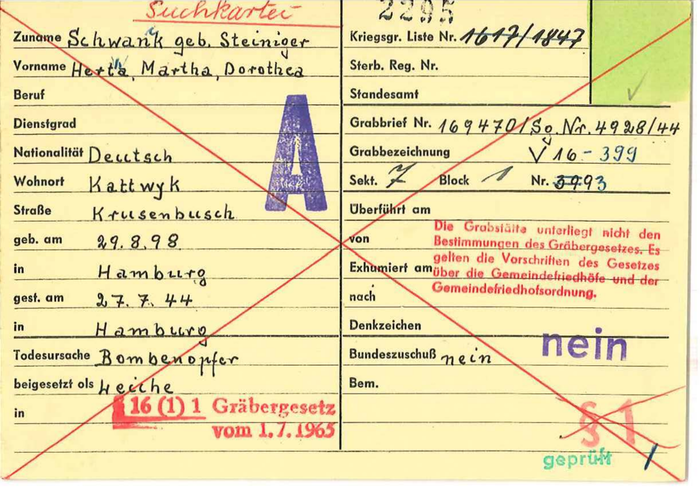 Suchkartei
2295
Zuname Schwank geb. Steiniger
Vorname Herta, Martha, Dorothea
Beruf
Dienstgrad
Nationalität Deutsch
Wohnort Kattwyk
Straße Krusenbusch
geb. am 29.8.98
in Hamburg
gest. am 27.7.44
in Hamburg
Todesursache Bombenopfer
beigesetzt als Leiche
in
§ 16 (1) 1 Gräbergesetz
vom 1.7.1965
A
Kriegsgr. Liste Nr. 1617/1847
Sterb. Reg. Nr.
Standesamt
Grabbrief Nr. 169470/So. Nr. 4928/44
Grabbezeichnung V 16-399
Sekt. 7 Block 1 Nr. 93
Überführt am
von
Exhumiert am
nach
Die Grabstätte unterliegt nicht den
Bestimmungen des Gräbergesetzes. Es
gelten die Vorschriften des Gesetzes
über die Gemeindefriedhöfe und der
Gemeindefriedhofsordnung.
Denkzeichen
nein
Bundeszuschuß nein
Bem.
§ 1
geprüft